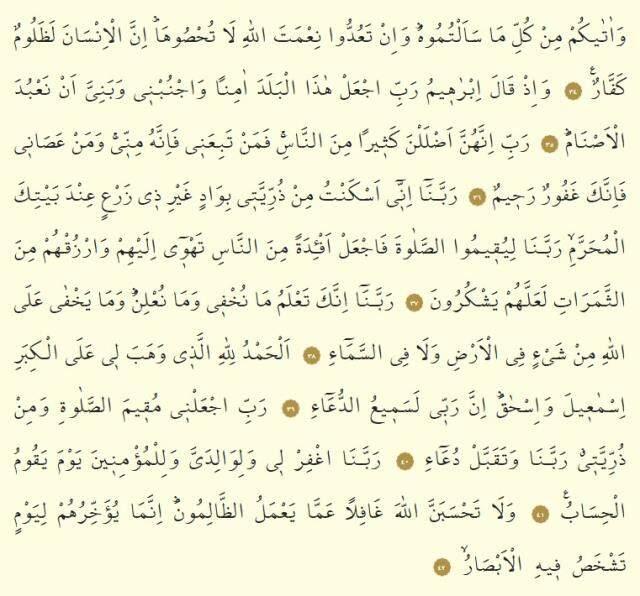 وَاٰتٰيكُمْ مِنْ كُلِّ مَا سَاَلْتُمُوهُۜ وَاِنْ تَعُدُّوا نِعْمَتَ اللّٰهِ لَا تُحْصُوهَاۜ اِنَّ الْاِنْسَانَ لَظَلُومٌ
كَفَّارٌ۟ ٣٤ وَاِذْ قَالَ اِبْرٰه۪يمُ رَبِّ اجْعَلْ هٰذَا الْبَلَدَ اٰمِنًا وَاجْنُبْن۪ي وَبَنِيَّ اَنْ نَعْبُدَ
الْاَصْنَامَۜ ٣٥ رَبِّ اِنَّهُنَّ اَضْلَلْنَ كَث۪يرًا مِنَ النَّاسِۚ فَمَنْ تَبِعَن۪ي فَاِنَّهُ مِنّ۪يۚ وَمَنْ عَصَان۪ي
فَاِنَّكَ غَفُورٌ رَح۪يمٌ ٣٦ رَبَّنَٓا اِنّ۪ٓي اَسْكَنْتُ مِنْ ذُرِّيَّت۪ي بِوَادٍ غَيْرِ ذ۪ي زَرْعٍ عِنْدَ بَيْتِكَ
الْمُحَرَّمِۙ رَبَّنَا لِيُق۪يمُوا الصَّلٰوةَ فَاجْعَلْ اَفْـِٔدَةً مِنَ النَّاسِ تَهْو۪ٓي اِلَيْهِمْ وَارْزُقْهُمْ مِنَ
الثَّمَرَاتِ لَعَلَّهُمْ يَشْكُرُونَ ٣٧ رَبَّنَٓا اِنَّكَ تَعْلَمُ مَا نُخْف۪ي وَمَا نُعْلِنُۜ وَمَا يَخْفٰى عَلَى
اللّٰهِ مِنْ شَيْءٍ فِي الْاَرْضِ وَلَا فِي السَّمَٓاءِ ٣٨ اَلْحَمْدُ لِلّٰهِ الَّذ۪ي وَهَبَ ل۪ي عَلَى الْكِبَرِ
اِسْمٰع۪يلَ وَاِسْحٰقَۜ اِنَّ رَبّ۪ي لَسَم۪يعُ الدُّعَٓاءِ ٣٩ رَبِّ اجْعَلْن۪ي مُق۪يمَ الصَّلٰوةِ وَمِنْ
ذُرِّيَّت۪يۗ رَبَّنَا وَتَقَبَّلْ دُعَٓاءِ ٤٠ رَبَّنَا اغْفِرْ ل۪ي وَلِوَالِدَيَّ وَلِلْمُؤْمِن۪ينَ يَوْمَ يَقُومُ
الْحِسَابُ۟ ٤١ وَلَا تَحْسَبَنَّ اللّٰهَ غَافِلًا عَمَّا يَعْمَلُ الظَّالِمُونَۜ اِنَّمَا يُؤَخِّرُهُمْ لِيَوْمٍ
تَشْخَصُ ف۪يهِ الْاَبْصَارُۙ ٤٢